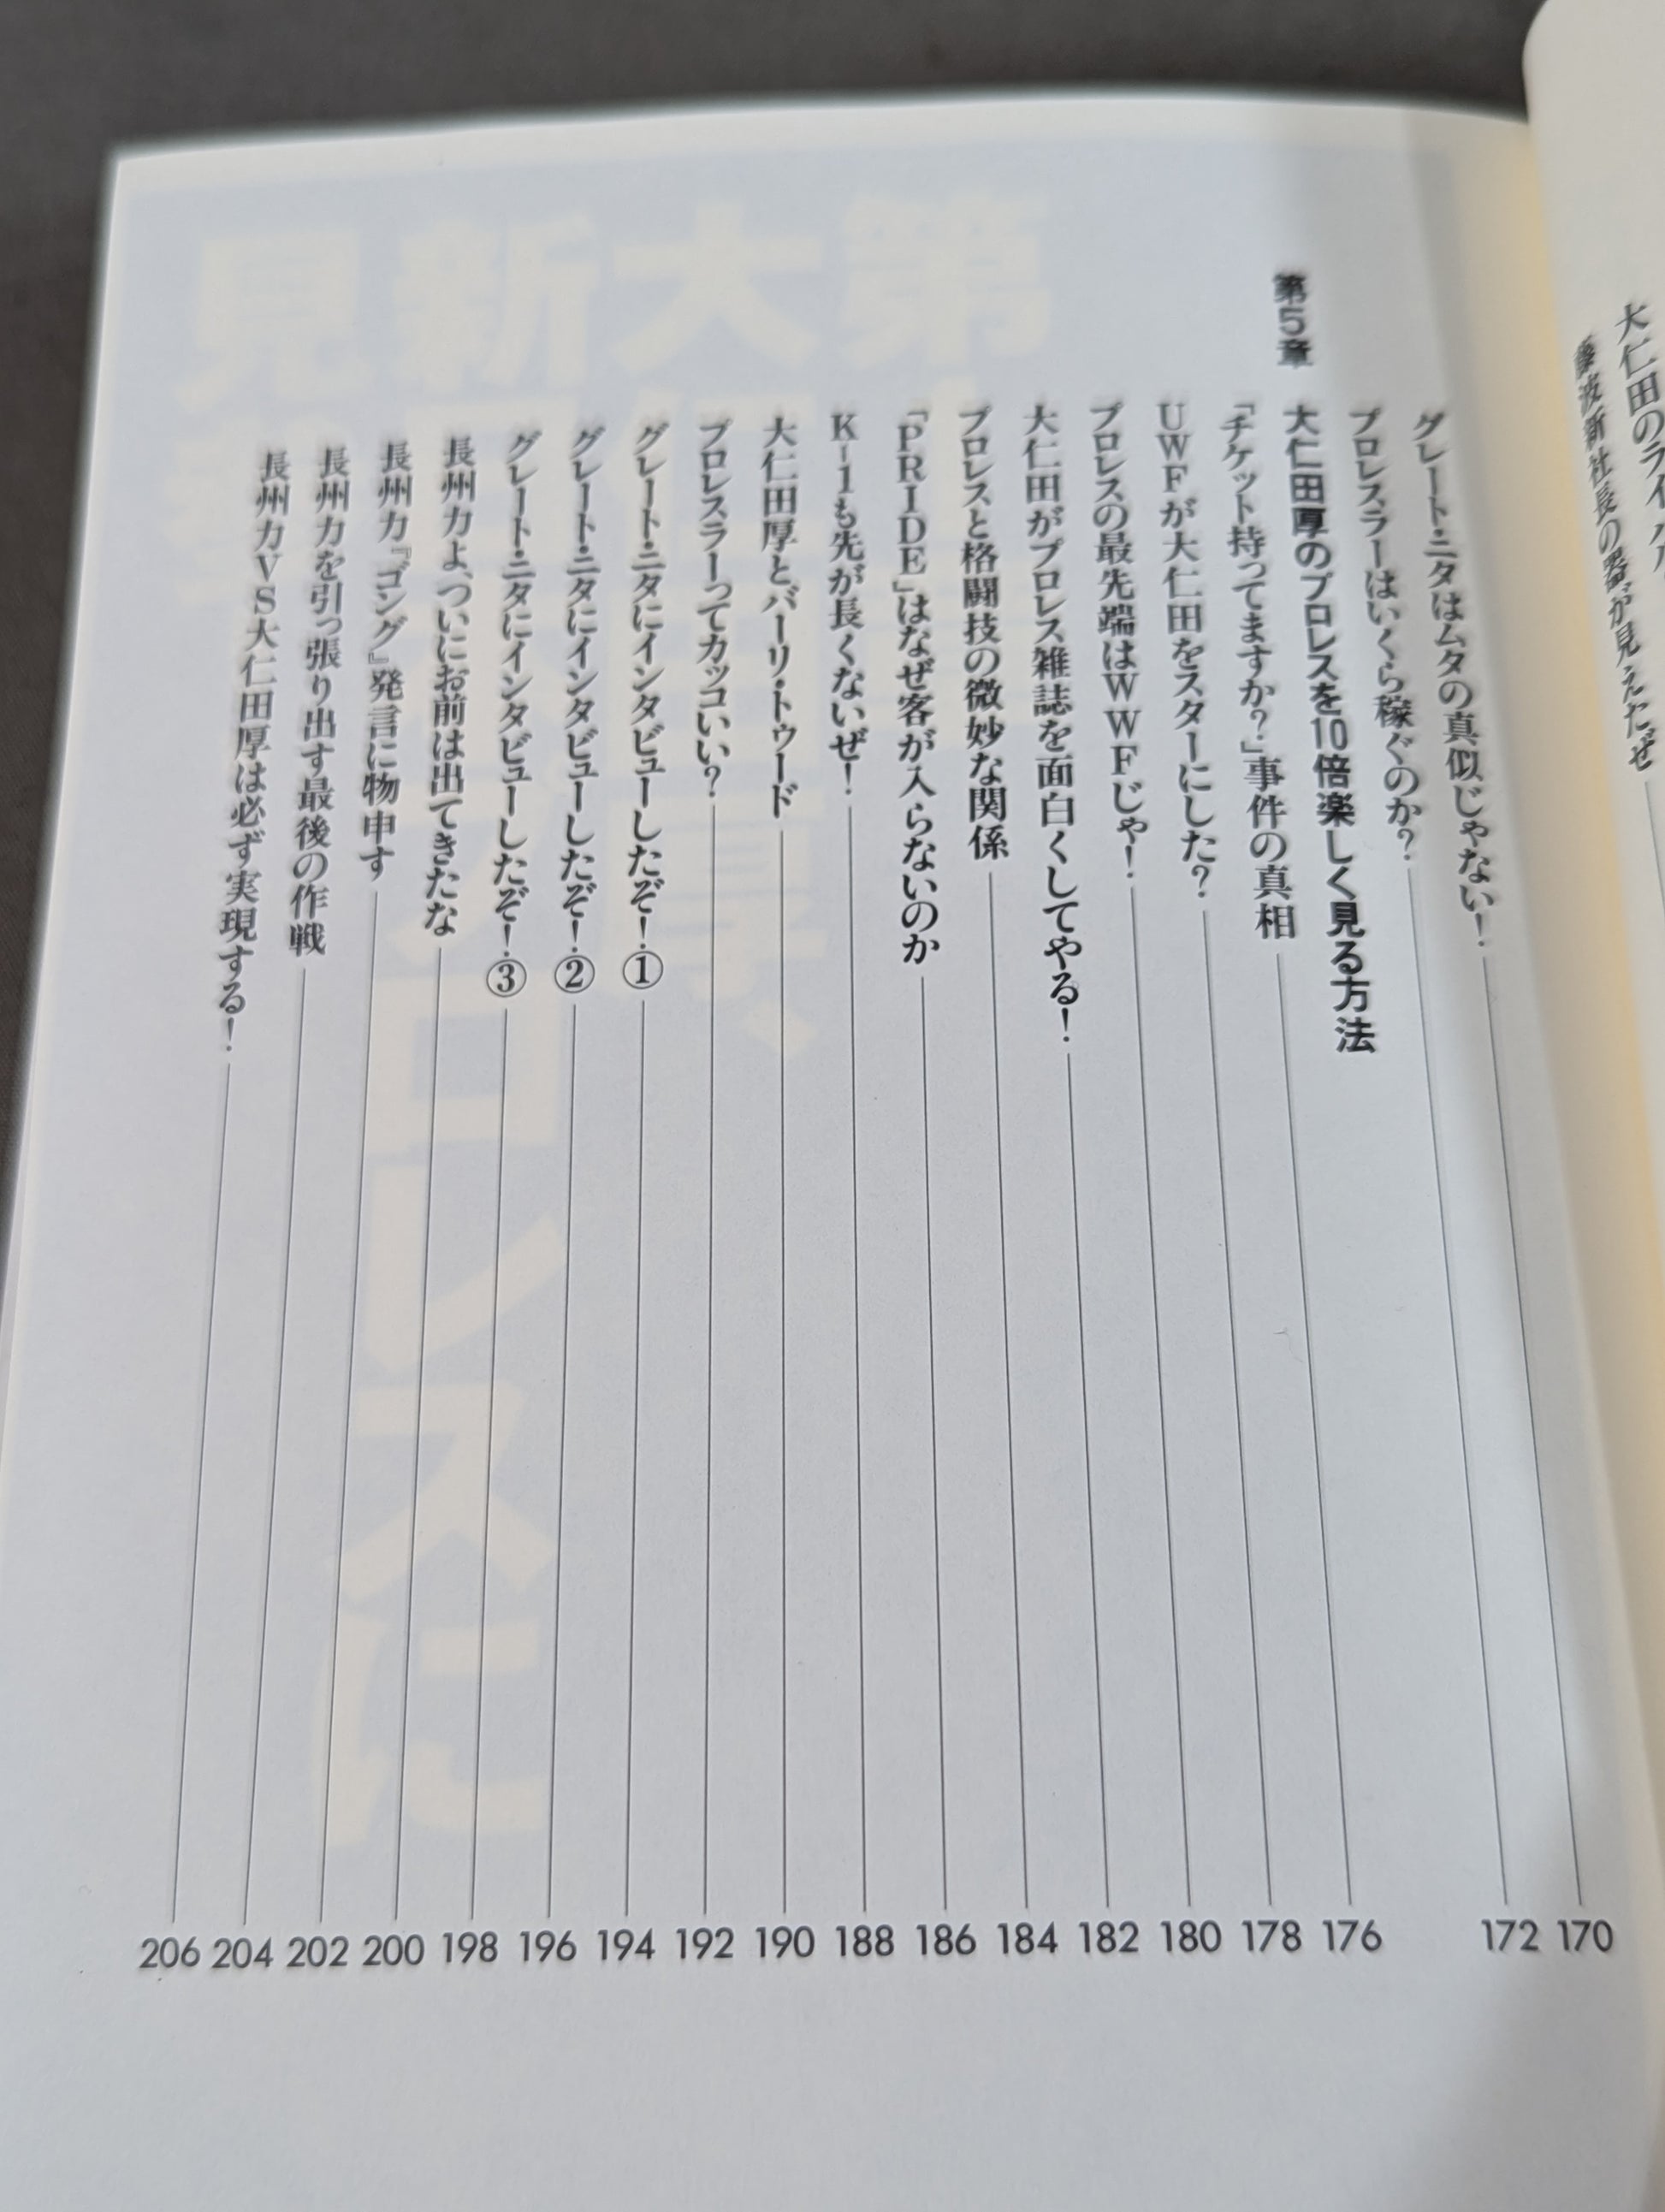 大仁田のライバル
藤波新社長の器が見えたぜ
グレート・ニタはムタの真似じゃない! 170
プロレスラーはいくら稼ぐのか? 172
第5章 大仁田厚のプロレスを10倍楽しく見る方法
「チケット持ってますか?」事件の真相 176
UWFが大仁田をスターにした? 178
プロレスの最先端はWWFじゃ! 180
大仁田がプロレス雑誌を面白くしてやる! 182
プロレスと格闘技の微妙な関係 184
「PRIDE」はなぜ客が入らないのか 186
K-1も先が長くないぜ! 188
大仁田厚とバーリ・トゥード 190
プロレスラーってカッコいい? 192
グレート・ニタにインタビューしたぞ!① 194
グレート・ニタにインタビューしたぞ!② 196
グレート・ニタにインタビューしたぞ!③ 198
長州力よ、ついにお前は出てきたな 200
長州力『ゴング』発言に物申す 202
長州力を引っ張り出す最後の作戦 204
長州力VS大仁田厚は必ず実現する! 206